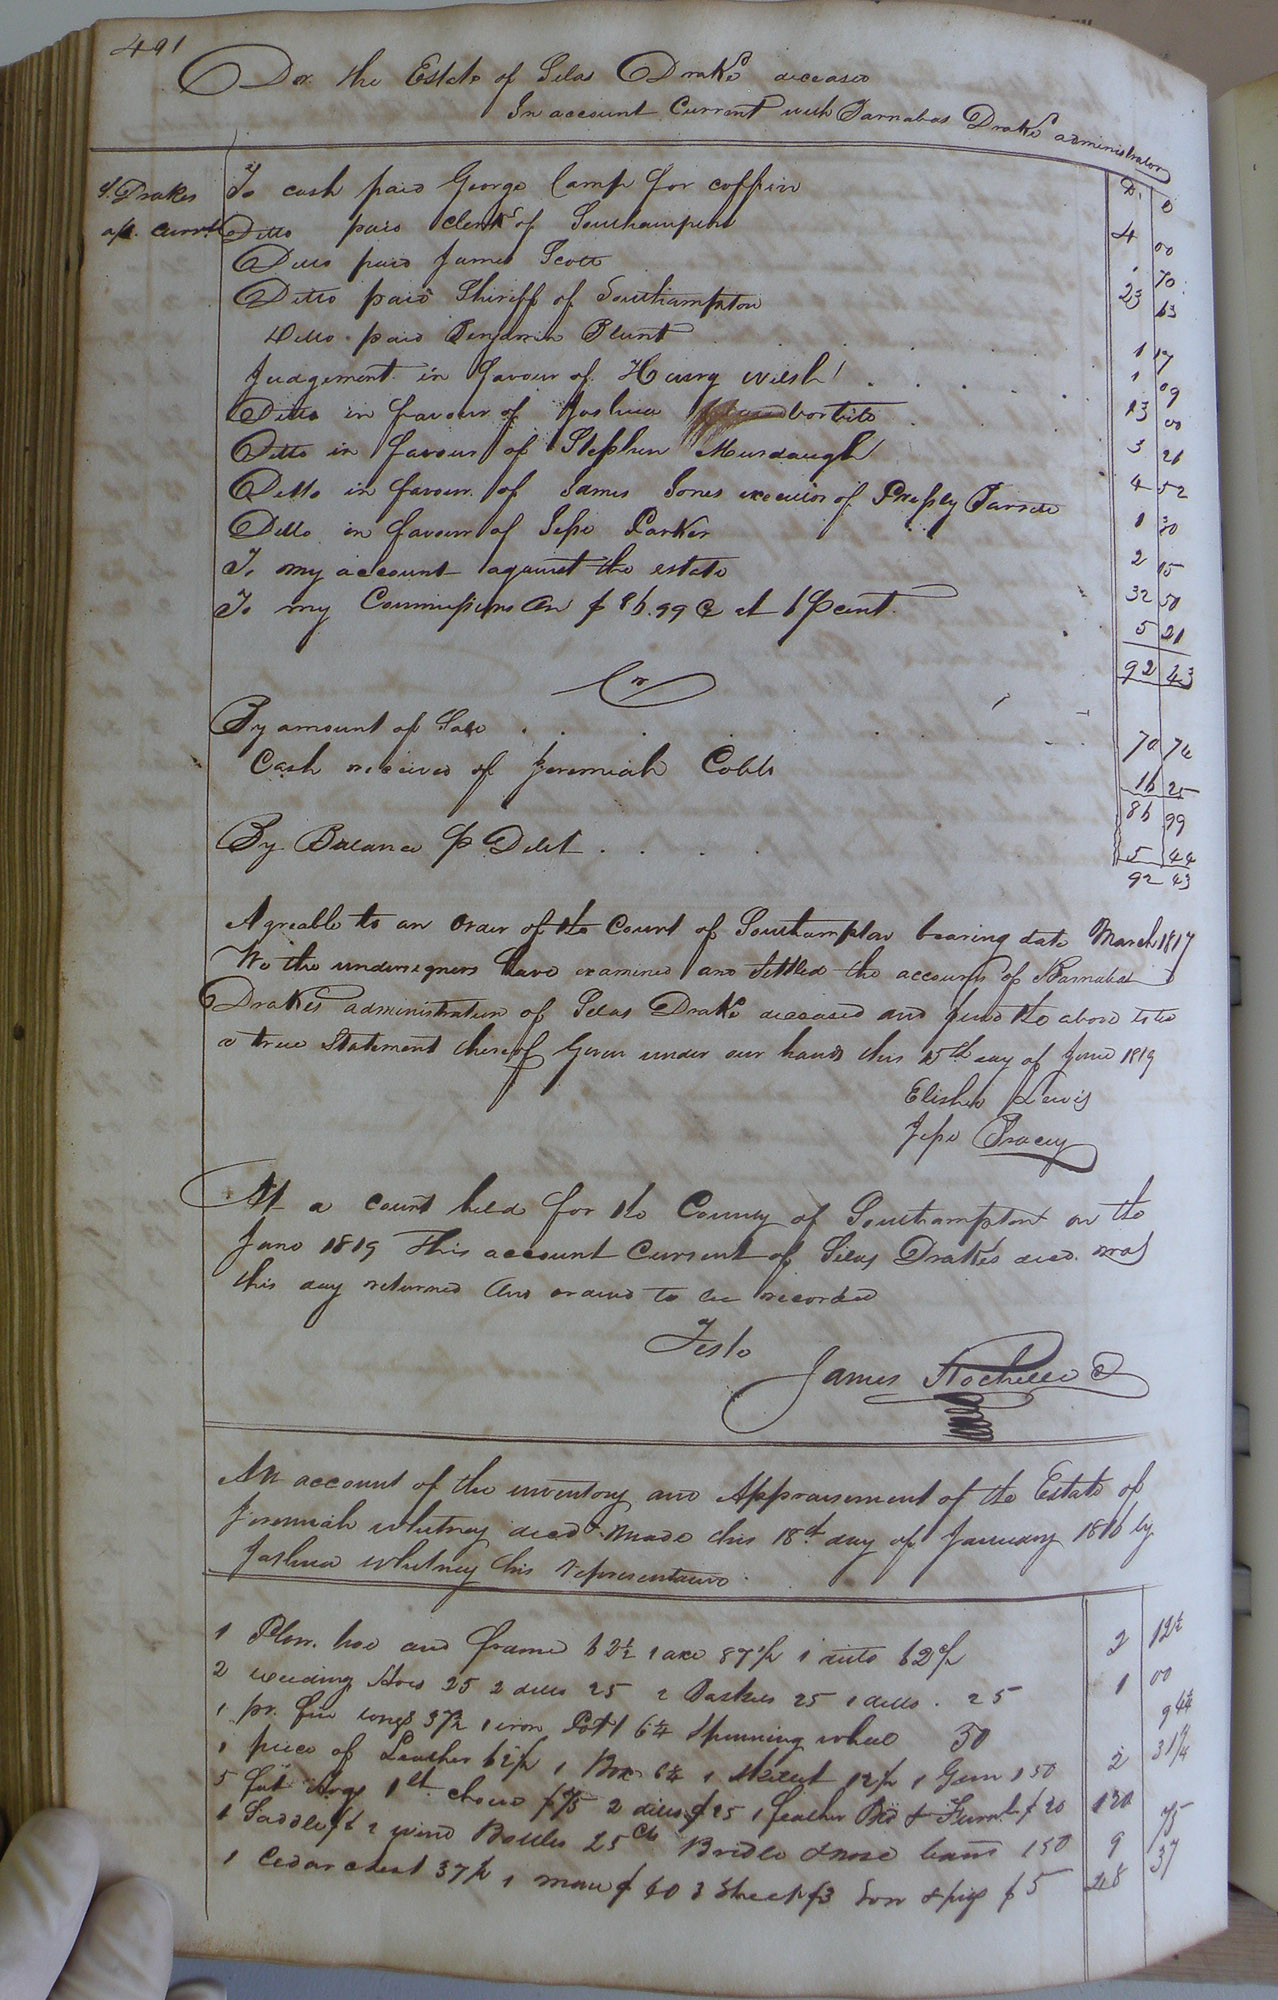 491
Dr. the Estate of Silas Drake deceased
In account Current with Barnabas Drake administrator
S. Drakes
a/c. Currt.
D. C
To cash paid George Camp for coffin 4 00
Ditto paid Clerk of Southampton 70
Ditto paid James Scott 23 63
Ditto paid Shiriff of Southampton 1 17
Ditto paid Benjamin Blunt 1 09
Judgement in favour of Henry Welsh 13 00
Ditto in favour of Joshua 3 26
Ditto in favour of Stephen Murdaugh 4 52
Ditto in favour of James Jones executor of Presley Barrett 1 30
Ditto in favour of Jesse Parker 2 15
To my account against the estate 32 50
To my Commissions on $ 86.99 C at 6 P cent 5 21
92 43
Cr
By amount of Sale 70 74
Cash received of Jeremiah Cobb 16 25
86 99
By Balance P Debt 5 44
92 43
Agreable to an order of the Court of Southampton bearing date March 1817
We the undersigners have examined and Settled the accounts of Barnabas
Drakes administration of Silas Drake deceased and find the above to be
a true Statement thereof Given under our hands this 15th day of June 1819
Elisha Lewis
Jesse Bracey
At a court held for the County of Southampton on the
June 1819 This account Current of Silas Drakes decd. was
this day returned and ordered to be recorded
Teste
James Rochelle C
An account of the inventory and Appraisement of the Estate of
Jeremiah Whitney decd. made this 18th day of January 1816 by
Joshua Whitney his representative
1 Plow. hoe and frame 62½ 1 axe 87½ 1 ditto 62½ 2 12½
2 weeding Hoes 25 2 ditto 25 2 Baskets 25 1 ditto 25 1 00
1 pr. fire tongs 37½ 1 iron Pot 6¼ Spinning wheel 50 94¼
1 piece of Leather 62½ 1 Box 6¼ 1 Skillet 12½ 1 Gun 150 2 31¼
5 fat Hogs 1st choice $75 2 ditto $25 1 feather Bed & Furnt. $20 120
1 Saddle $6 2 wine Bottles 25 Cts Bridle & nose 150 9 75
1 Cedar chest 37½ 1 mare $ 40 3 Sheep $3 Sow & pigs $ 5 48 37